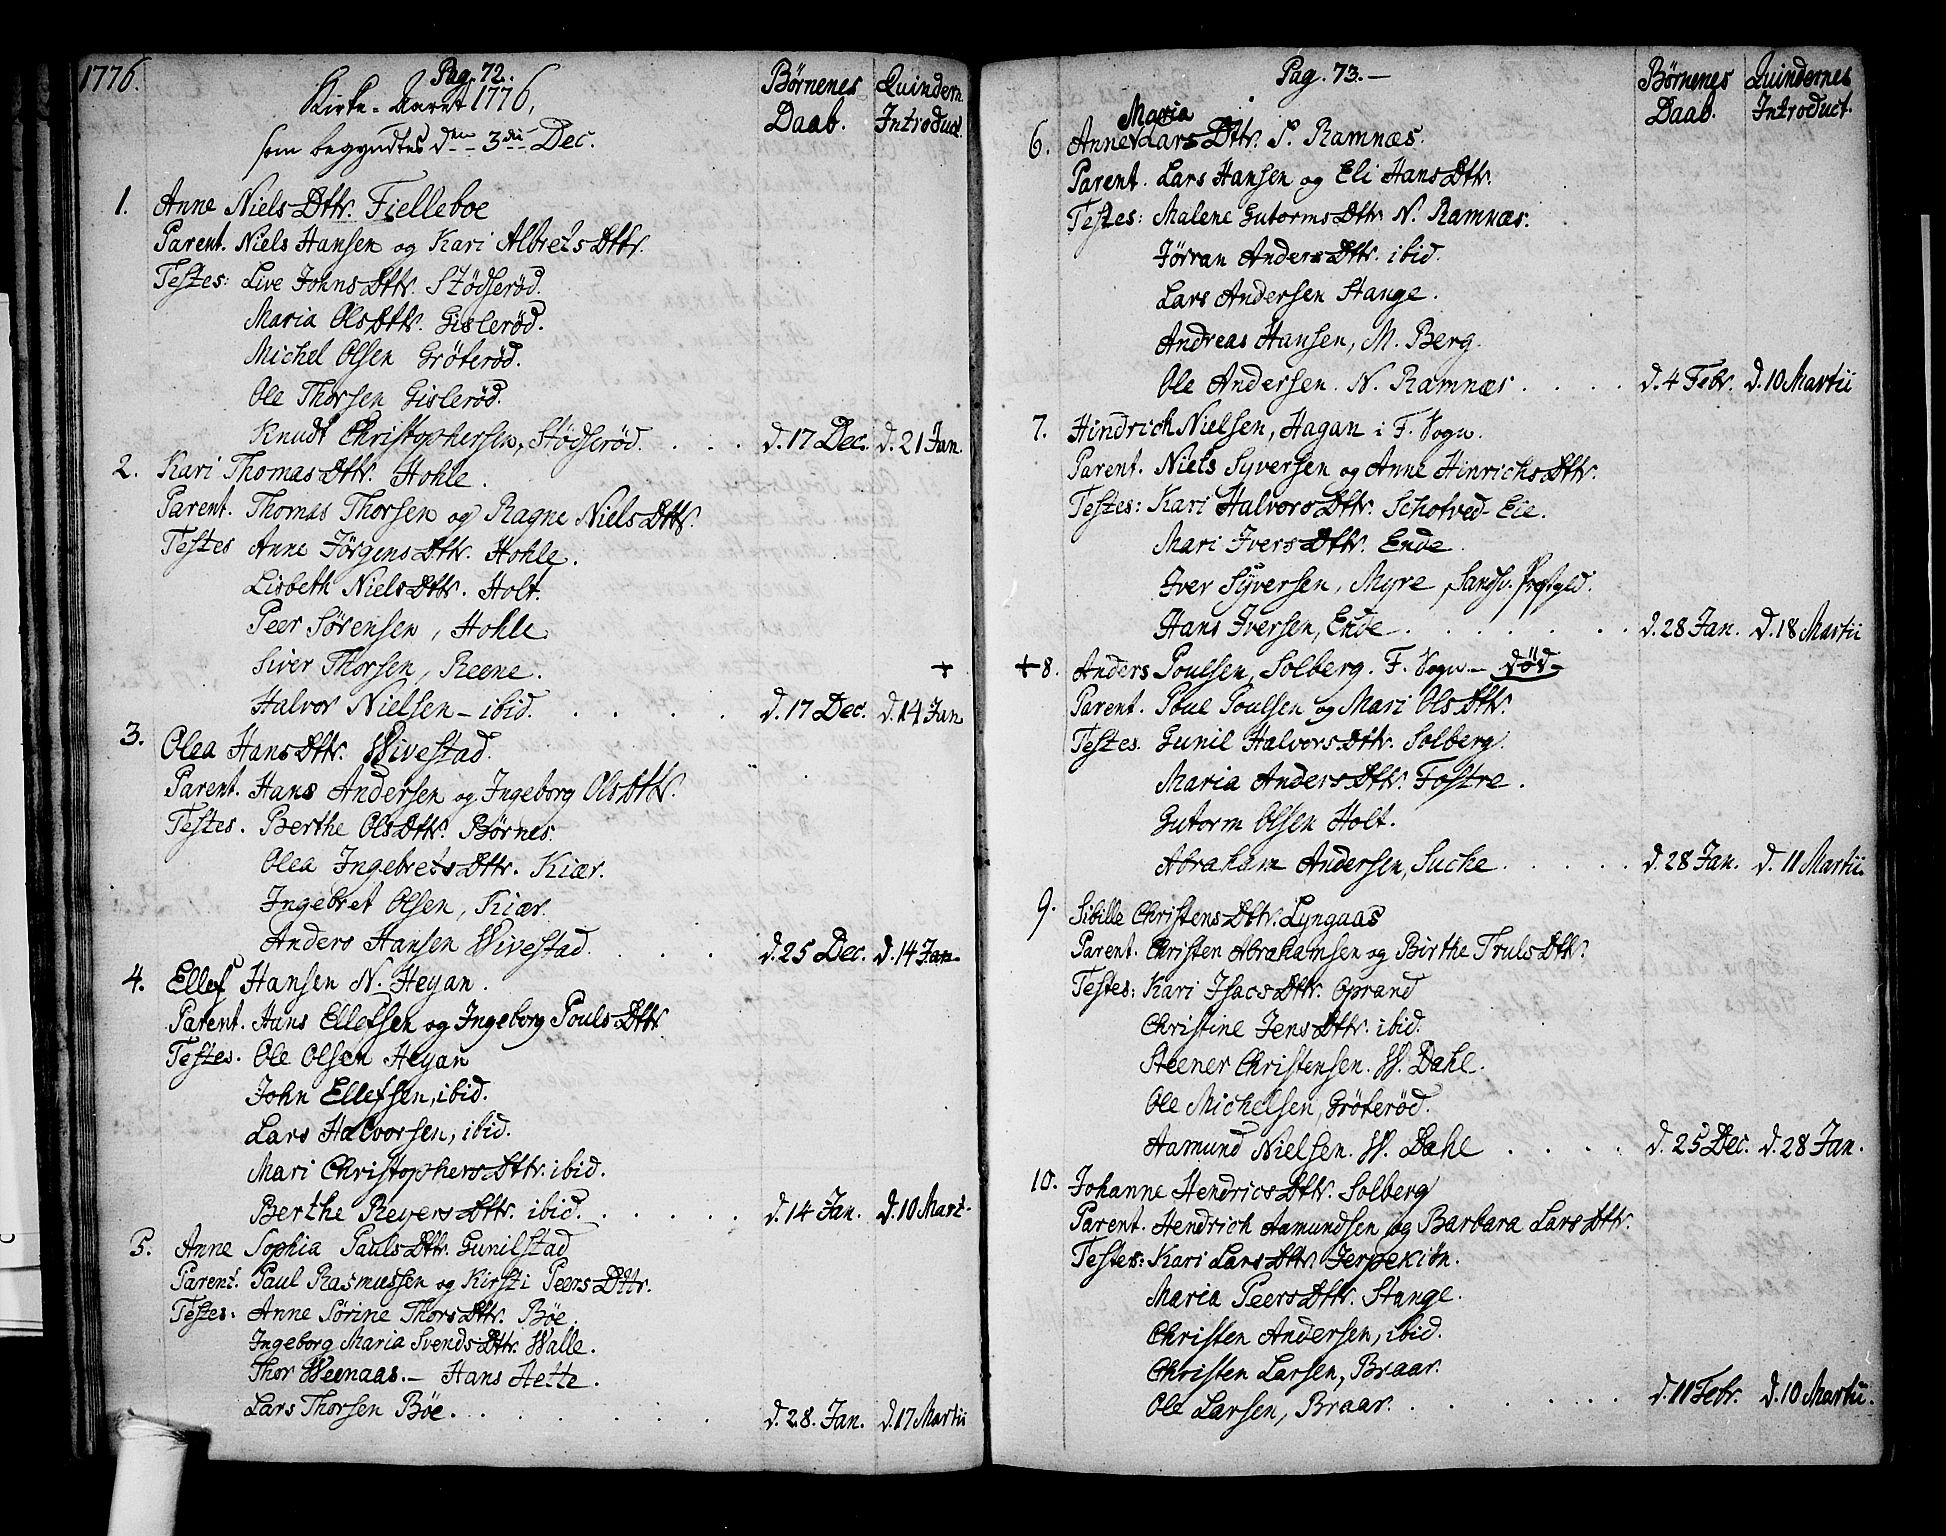 1776.
Pag. 72.
Kirke-Aaret 1776,
som begyndtes d. 3die Dec.
Børnenes Daab.
Quindern. Introduct.
1. Anne Niels Dttr. Fielleboe
Parent. Niels Hansen og Kari Albrets Dttr.
Testes: Live Johns Dttr. Stødserød.
Maria Ols Dttr. Gislerød.
Michel Olsen Grøterød.
Ole Thorsen Gislerød.
Knudt Christophersen, Stødserød. . . . d. 17 Dec. d. 21 Jan.
2. Kari Thomas Dttr. Hohle.
Parent. Thomas Thorsen og Ragne Niels Dttr.
Testes Anne Jørgens Dttr. Hohle.
Lisbeth Niels Dttr. Holt.
Peer Sørensen, Hohle
Siver Thorsen, Reene. +
Halvor Nielsen - ibid. . . . . d. 17 Dec. d. 14 Jan
3. Olea Hans Dttr. Wivestad.
Parent. Hans Andersen og Ingeborg Ols Dttr.
Testes. Berthe Ols Dttr. Børnes.
Olea Ingebrets Dttr. Kiær.
Ingebret Olsen, Kiær.
Anders Hansen Wivestad. . . . d. 25 Dec. d. 14 Jan.
4. Ellef Hansen N. Heyan.
Parent. Hans Ellefsen og Ingeborg Pouls Dttr
Testes. Ole Olsen Heyan
John Ellefsen, ibid.
Lars Halvorsen, ibid.
Mari Christophers Dttr. ibid.
Berthe Reyers Dttr. ibid. . . . . . d. 14 Jan. d. 10 Mart.
5. Anne Sophia Pauls Dttr. Gunilstad
Parent. Paul Rasmussen og Kirsti Peers Dttr.
Testes: Anne Sørine Thors Dttr. Bøe.
Ingeborg Maria Svends Dttr. Walle.
Thor Weenaas. - Hans Aette.
Lars Thorsen Bøe. . . . . . . d. 28. Jan. d. 17 Martii
Pag. 73. -
Børnenes Daab.
Quindernes Introduct.
Maria
6. Anne Lars Dttr. S. Ramnæs.
Parent. Lars Hansen og Eli Hans Dttr.
Testes: Malene Gutorms Dttr. N. Ramnæs.
Jørran Anders Dttr. ibid.
Lars Andersen Stange.
Andreas Hansen, M. Berg.
Ole Andersen. N. Ramnæs . . . . d. 4 Febr. d. 10 Martii
7. Hindrich Nielsen, Hagan i F. Sogn.
Parent. Niels Syversen og Anne Hinrichs Dttr.
Testes: Kari Halvors Dttr. Schotved-Eie.
Mari Ivers Dttr. Ende.
Iver Syversen, Myre, Sandv. Præstgld.
Hans Iversen, Ende . . . . . . d. 28 Jan. d. 18 Martii
+ 8. Anders Poulsen, Solberg. F. Sogn - død -
Parent. Poul Poulsen og Mari Ols Dttr.
Testes. Gunil Halvors Dttr. Solberg.
Maria Anders Dttr. Fostre.
Gutorm Olsen Holt.
Abraham Andersen, Suche . . . . . d. 28 Jan. d. 11 Martii.
9. Sibille Christens Dttr. Lyngaas
Parent. Christen Abrahamsen og Birthe Truls Dttr.
Testes: Kari Isacs Dttr. Oprand
Christine Jens Dttr. ibid.
Steener Christensen. W. Dahl.
Ole Michelsen, Grøterød.
Aamund Nielsen. W. Dahl . . . . d. 25 Dec. d. 28 Jan.
10. Johanne Hendrics Dttr. Solberg
Parent. Hendrich Aamundsen og Barbara Lars Dttr.
Testes: Kari Lars Dttr. Jerpekiøn.
Maria Peers Dttr. Stange.
Christen Andersen, ibid.
Christen Larsen, Braar.
Ole Larsen, Braar. . . . . . . d. 11 Febr. d. 10 Martii.